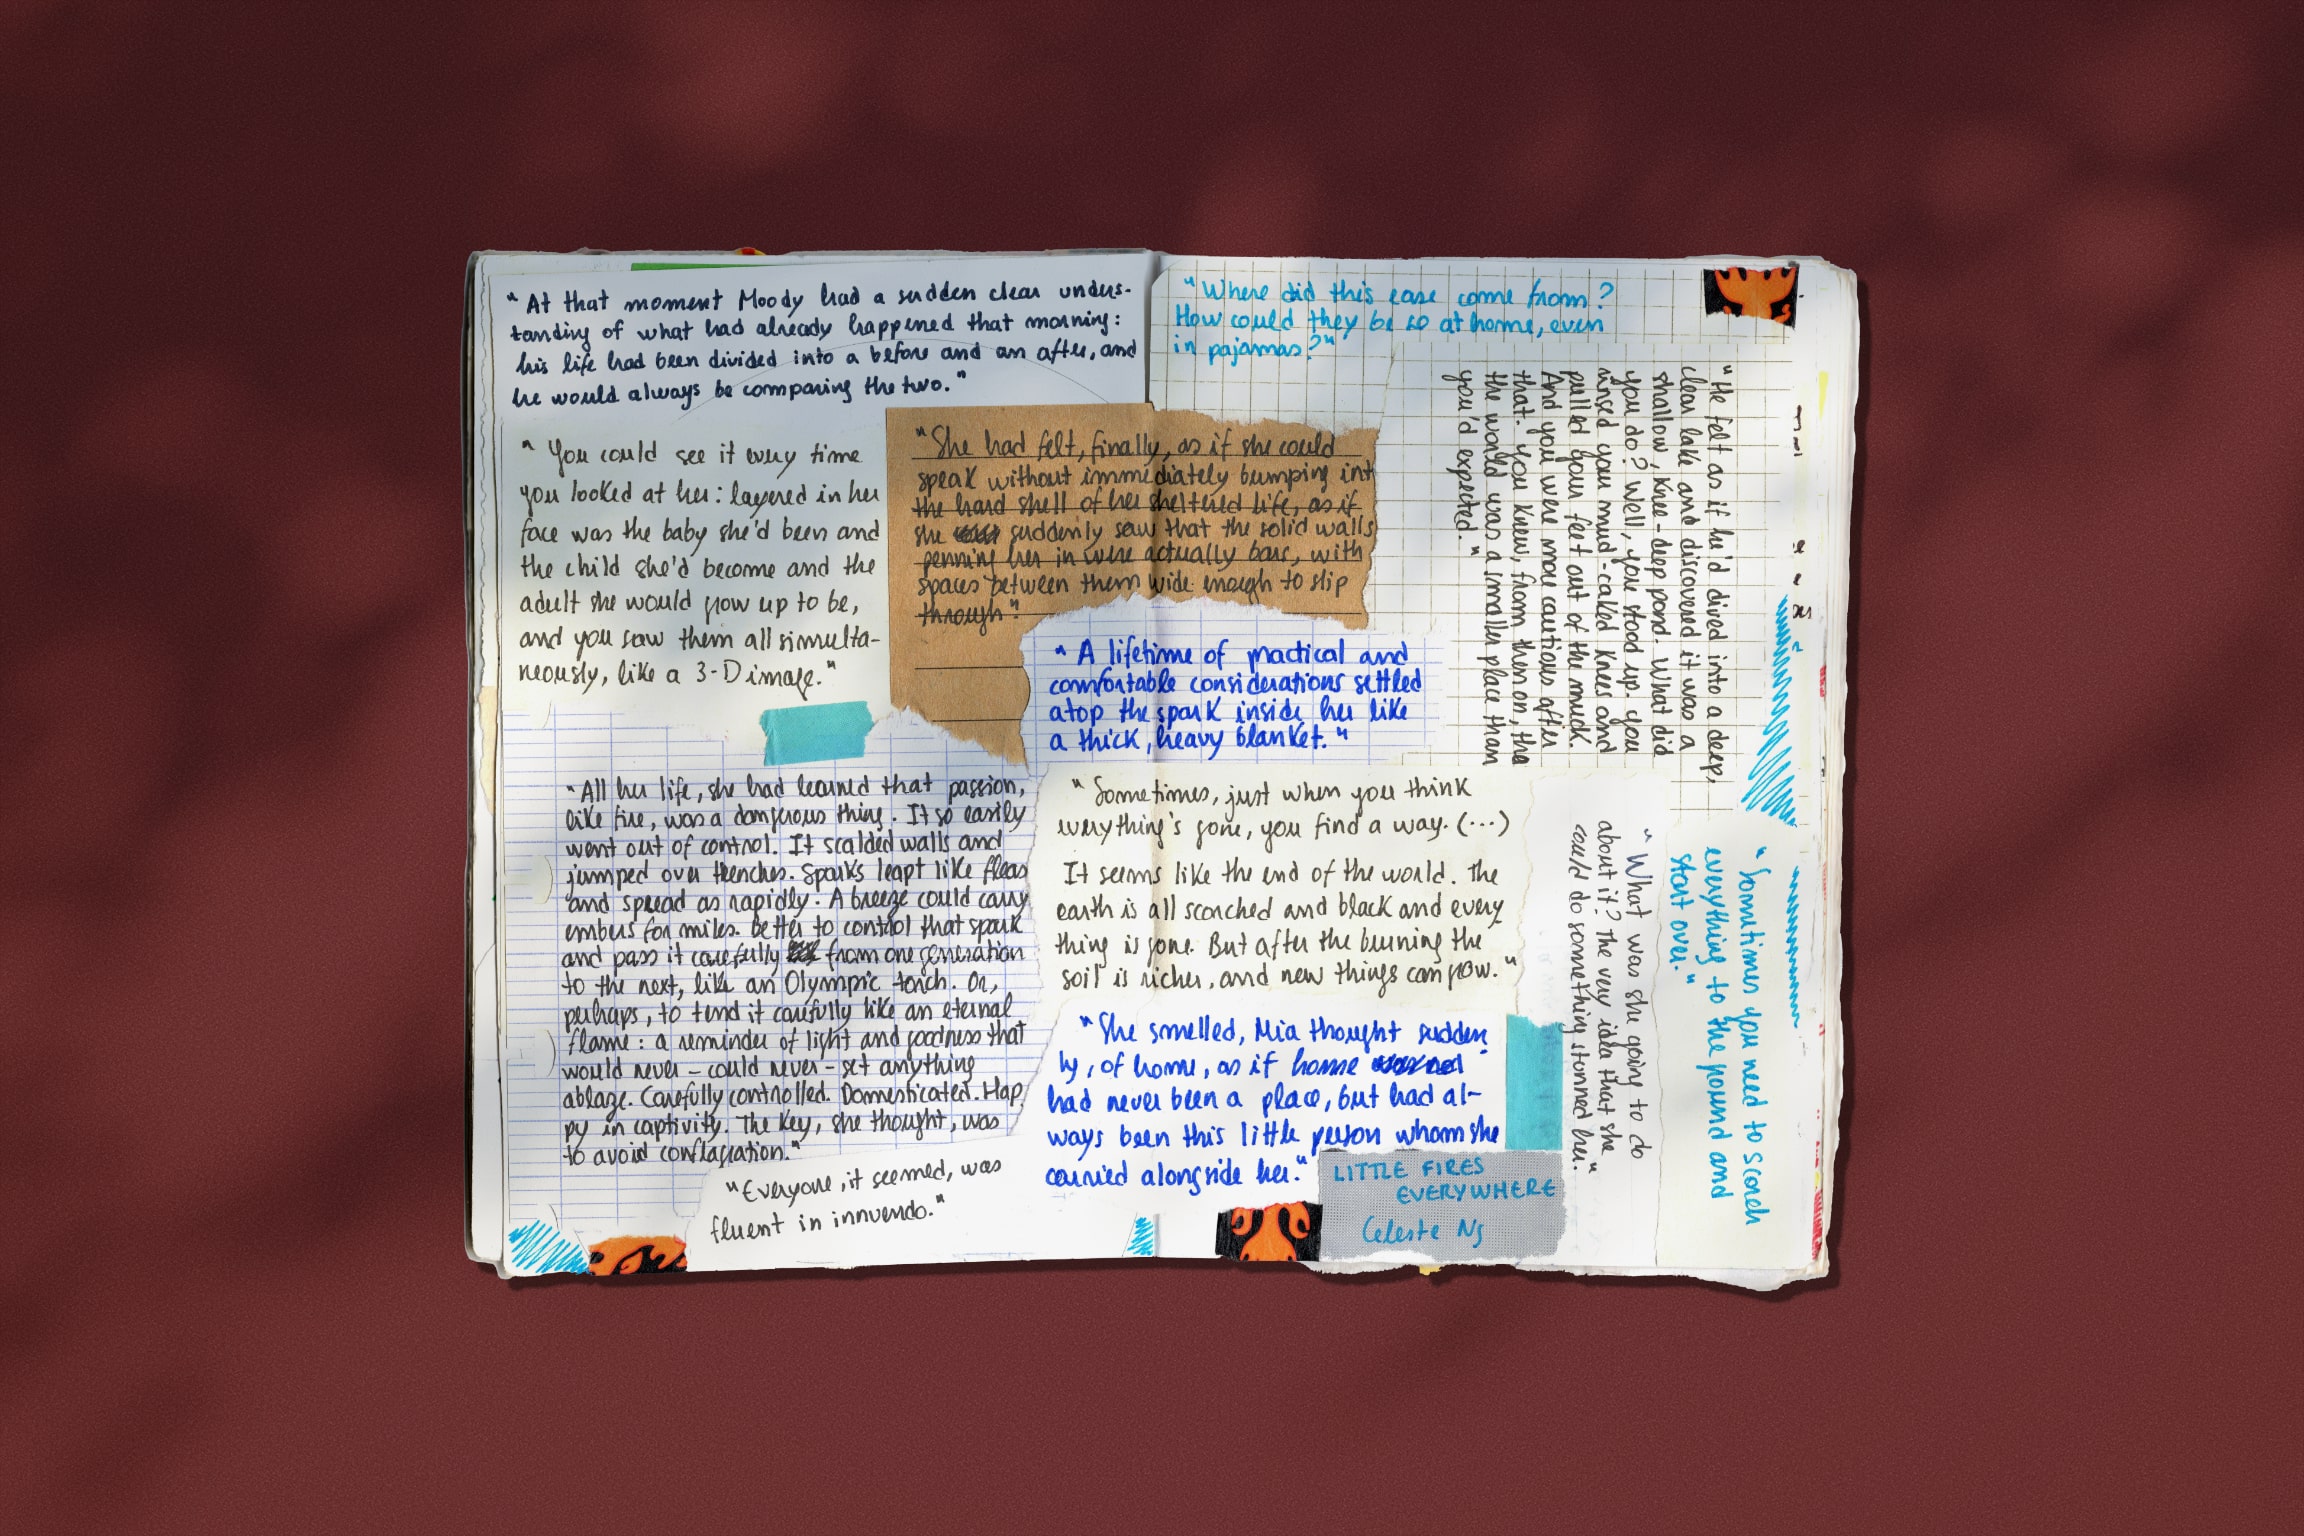 "At that moment Moody had a sudden clear unders-
tanding of what had already happened that morning:
his life had been divided into a before and an after, and
he would always be comparing the two."
"You could see it every time
you looked at her: layered in her
face was the baby she'd been and
the child she'd become and the
adult she would grow up to be,
and you saw them all simulta-
neously, like a 3-D image."
"She had felt, finally, as if she could
speak without immediately bumping int
the hard shell of her sheltered life, as if
she suddenly saw that the solid walls
penning her in were actually bars, with
spaces between them wide enough to slip
through."
"All her life, she had learned that passion,
like fire, was a dangerous thing. It so easily
went out of control. It scalded walls and
jumped over trenches. Sparks leapt like fleas
and spread as rapidly. A breeze could carry
embers for miles. Better to control that spark
and pass it carefully from one generation
to the next, like an Olympic torch. Or,
perhaps, to tend it carefully like an eternal
flame: a reminder of light and goodness that
would never - could never - set anything
ablaze. Carefully controlled. Domesticated. Hap
py in captivity. The key, she thought, was
to avoid conflagration."
"Everyone, it seemed, was
fluent in innuendo."
"Where did this ease come from?
How could they be so at home, even
in pajamas?"
"He felt as if he'd dived into a deep,
clear lake and discovered it was a
shallow, knee-deep pond. What did
you do? Well, you stood up. You
rinsed your mud-caked knees and
pulled your feet out of the muck.
And you were more cautious after
that. You knew, from then on, the
the world was a smaller place than
you'd expected."
"A lifetime of practical and
comfortable considerations settled
atop the spark inside her like
a thick, heavy blanket."
"Sometimes, just when you think
everything's gone, you find a way. (...)
It seems like the end of the world. The
earth is all scorched and black and every
thing is gone. But after the burning the
soil is richer, and new things can grow."
"She smelled, Mia thought sudden
ly, of home, as if home
had never been a place, but had al-
ways been this little person whom she
carried alongside her."
"What was she going to do
about it? The very idea that she
could do something stunned her."
"Sometimes you need to scorch
everything to the ground and
start over."
LITTLE FIRES
EVERYWHERE
Celeste Ng